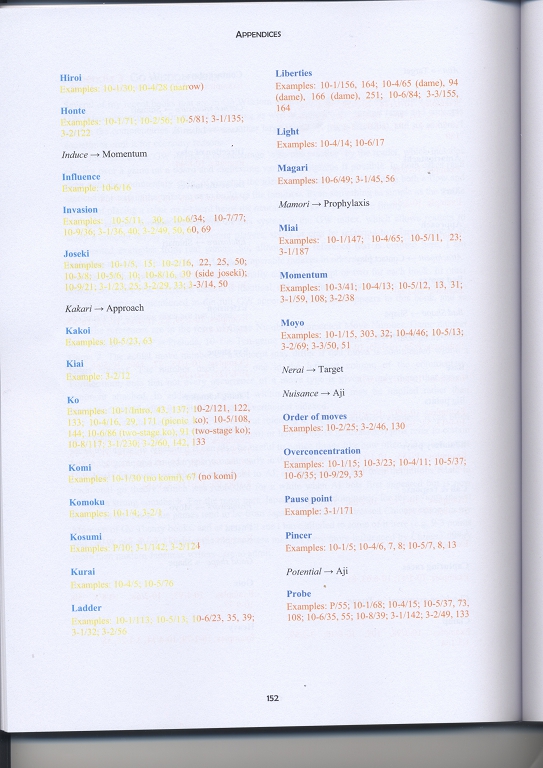 APPENDICES
Hiroi
Examples: 10-1/50; 10-4/26 (narrow)
Honte
Examples: 10-1/71; 10-2/50; 10-5/81; 3-1/135;
3-2/122
Induce → Momentum
Influence
Example: 10-6/16
Invasion
Examples: 10-5/11, 30; 10-6/34; 10-7/77;
10-9/36; 3-1/36, 40; 3-2/48, 50, 60, 69
Joseki
Examples: 10-1/5, 13; 10-2/16, 22, 25, 50;
10-3/8; 10-5/6, 10; 10-8/16, 19 (side joseki);
10-9/21; 3-1/23, 25; 3-2/29, 33; 3-3/14, 50
Kakari → Approach
Kakoi
Examples: 10-1/23, 63
Kiai
Example: 3-2/12
Ko
Examples: 10-1/Intro, 43, 137; 10-2/121, 122,
133; 10-4/16, 29, 171 (picnic ko); 10-5/108,
144; 10-6/86 (two-stage ko), 91 (two-stage ko);
10-8/117; 3-1/230; 3-2/60, 142, 133
Komi
Examples: 10-1/30 (no komi), 67 (no komi)
Komoku
Examples: 10-1/4; 3-2/1
Kosumi
Examples: P/10; 3-1/142; 3-2/124
Kurai
Examples: 10-4/5; 10-5/76
Ladder
Examples: 10-1/113; 10-5/13; 10-6/23, 35, 39;
3-1/32; 3-2/59
Liberties
Examples: 10-1/156, 164; 10-4/65 (dame), 94
(dame), 166 (dame), 251; 10-6/84; 3-3/155,
164
Light
Examples: 10-4/14; 10-6/17
Magari
Examples: 10-6/49; 3-1/45, 56
Mamori → Prophylaxis
Miai
Examples: 10-1/147; 10-4/65; 10-5/11, 23;
3-1/187
Momentum
Examples: 10-3/41; 10-4/13; 10-5/12, 13, 31;
3-1/59, 108; 3-2/38
Moyo
Examples: 10-1/15, 303, 32; 10-4/46; 10-5/13;
3-2/69; 3-3/50, 51
Nerai → Target
Nuisance → Aji
Order of moves
Examples: 10-2/25; 3-2/46, 130
Overconcentration
Examples: 10-1/15; 10-3/23; 10-4/11; 10-5/37;
10-6/35; 10-9/29, 33
Pause point
Example: 3-1/171
Pincer
Examples: 10-1/5; 10-4/6, 7, 8; 10-5/7, 8, 13
Potential → Aji
Probe
Examples: P/55; 10-1/68; 10-4/15; 10-5/37, 73,
108; 10-6/35, 55; 10-8/39; 3-1/142; 3-2/49, 133
152